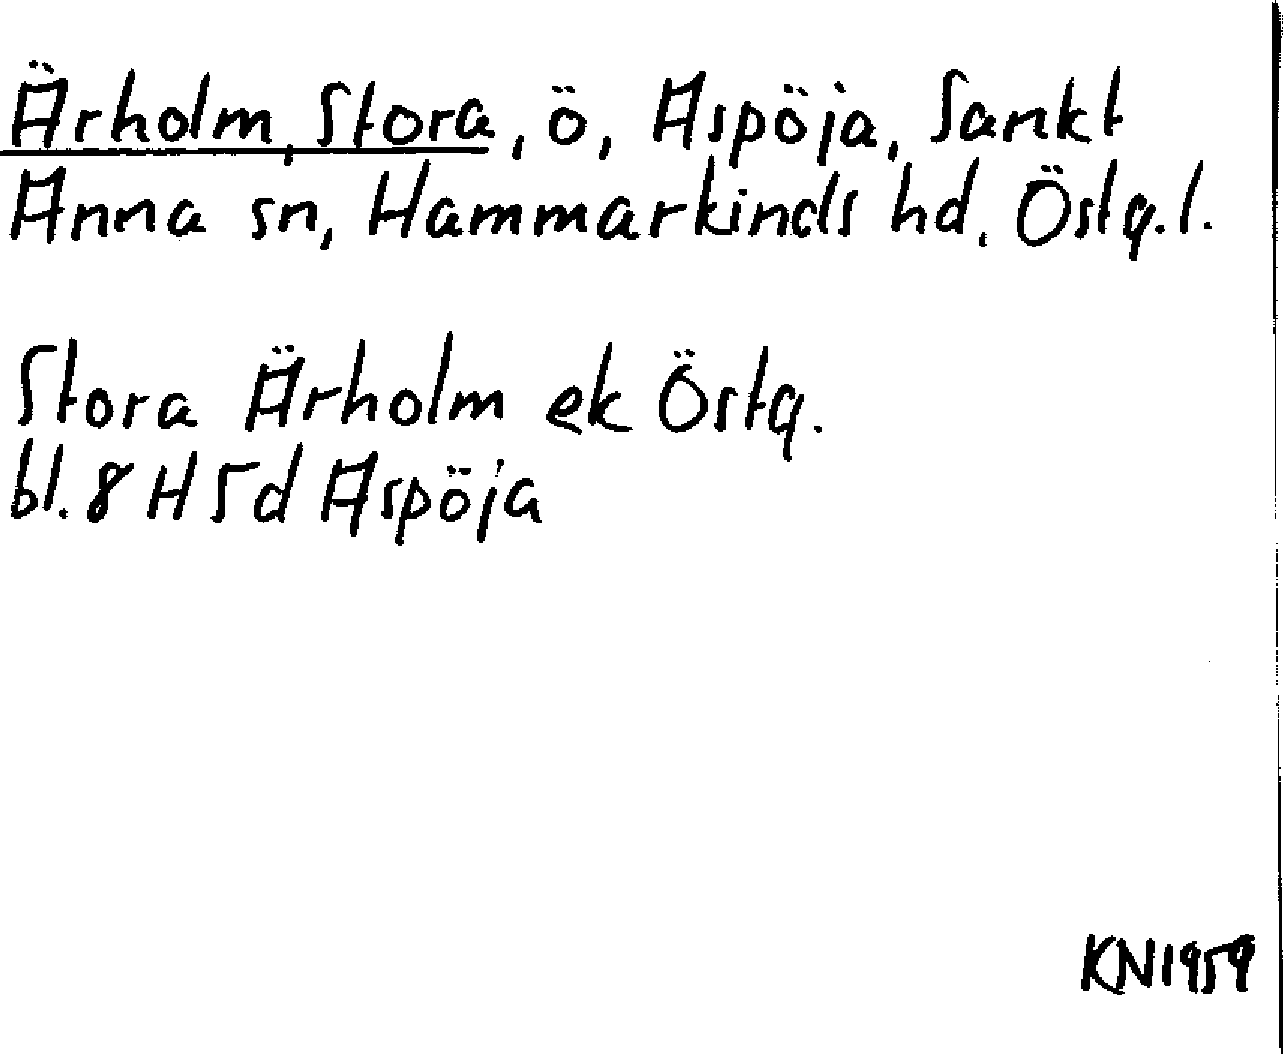 Ärholm, Stora, ö, Aspöja, Sankt
Anna sn, Hammarkinds hd, Östg.l.
Stora Ärholm ek Östg.
bl. 8 H 5d Aspöja
KN1959